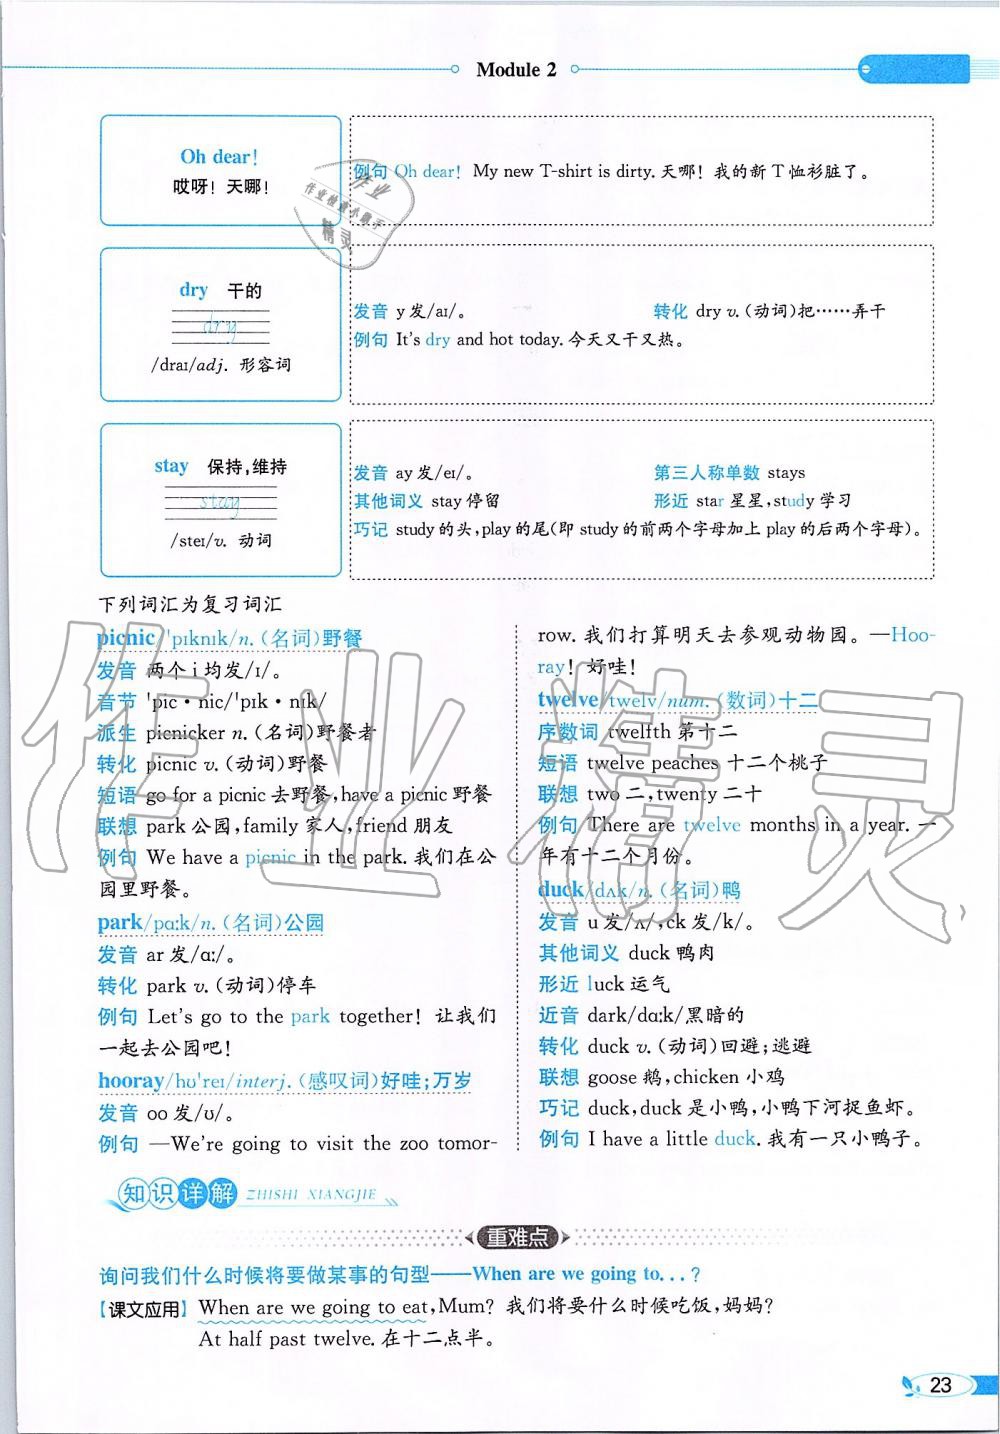 Module 2
Oh dear!
哎呀！天哪！
例句 Oh dear! My new T-shirt is dirty. 天哪！我的新T恤衫脏了。
dry 干的
dry
/draɪ/adj. 形容词
发音 y 发/aɪ/。 转化 dry v.(动词)把……弄干
例句 It's dry and hot today. 今天又干又热。
stay 保持,维持
stay
/steɪ/v. 动词
发音 ay 发/eɪ/。 第三人称单数 stays
其他词义 stay 停留 形近 star 星星,study 学习
巧记 study 的头,play 的尾(即 study 的前两个字母加上 play 的后两个字母)。
下列词汇为复习词汇
picnic/'pɪknɪk/n.(名词)野餐
发音 两个 i 均发/ɪ/。
音节 'pic·nic/'pɪk·nɪk/
派生 picnicker n.(名词)野餐者
转化 picnic v.(动词)野餐
短语 go for a picnic 去野餐,have a picnic 野餐
联想 park 公园,family 家人,friend 朋友
例句 We have a picnic in the park. 我们在公
园里野餐。
park/pɑːk/n.(名词)公园
发音 ar 发/ɑː/。
转化 park v.(动词)停车
例句 Let's go to the park together! 让我们
一起去公园吧!
hooray/hʊ'reɪ/interj.(感叹词)好哇;万岁
发音 oo 发/ʊ/。
例句 —We're going to visit the zoo tomor-
row. 我们打算明天去参观动物园。—Hoo-
ray! 好哇!
twelve/twelv/num.(数词)十二
序数词 twelfth 第十二
短语 twelve peaches 十二个桃子
联想 two 二,twenty 二十
例句 There are twelve months in a year. 一
年有十二个月份。
duck/dʌk/n.(名词)鸭
发音 u 发/ʌ/,ck 发/k/。
其他词义 duck 鸭肉
形近 luck 运气
近音 dark/dɑːk/黑暗的
转化 duck v.(动词)回避;逃避
联想 goose 鹅,chicken 小鸡
巧记 duck,duck 是小鸭,小鸭下河捉鱼虾。
例句 I have a little duck. 我有一只小鸭子。
知识详解 ZHISHI XIANGJIE
重难点
询问我们什么时候将要做某事的句型——When are we going to...?
【课文应用】 When are we going to eat,Mum? 我们将要什么时候吃饭,妈妈?
At half past twelve. 在十二点半。
23
作业精灵
作业
作业检查小助手
精灵